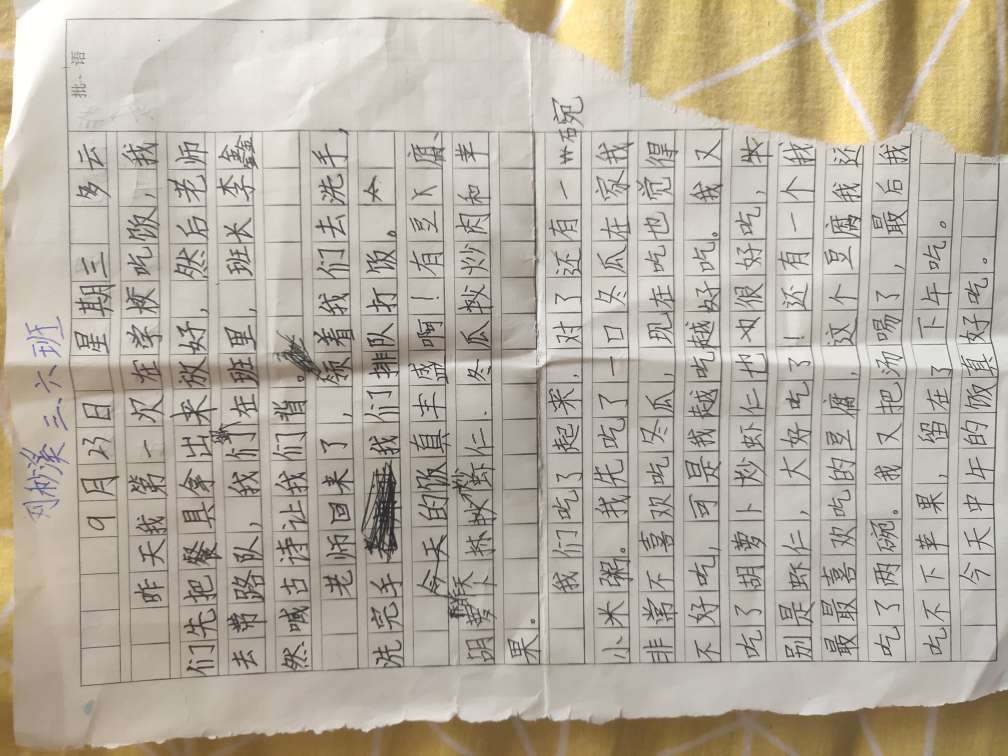 批、语
三、六班
9月23日 星期三 多云
昨天我第一次在学校吃饭，我
们先把餐具拿出来放好，然后老师
去带路队，我们在班里，班长李鑫
然喊古诗让我们背。
老师回来了，领着我们去洗手，
洗完手我们排队打饭。
今天的饭真丰盛啊！有豆腐、
胡萝卜炒虾仁．冬瓜炒肉和苹
果。
我们吃了起来，对了还有一碗
小米粥。我先吃了一口冬瓜在家我
非常不喜欢吃冬瓜，现在吃也觉得
不好吃，可是我越吃越好吃。我又
吃了胡萝卜炒虾仁也很好吃，
别是虾仁，大好吃了！还有一个我
最最喜欢吃的豆腐，这个豆腐我
吃了两碗。我又把汤喝了，最后我
吃不下苹果，留在了下午吃。
今天中午的饭真好吃。